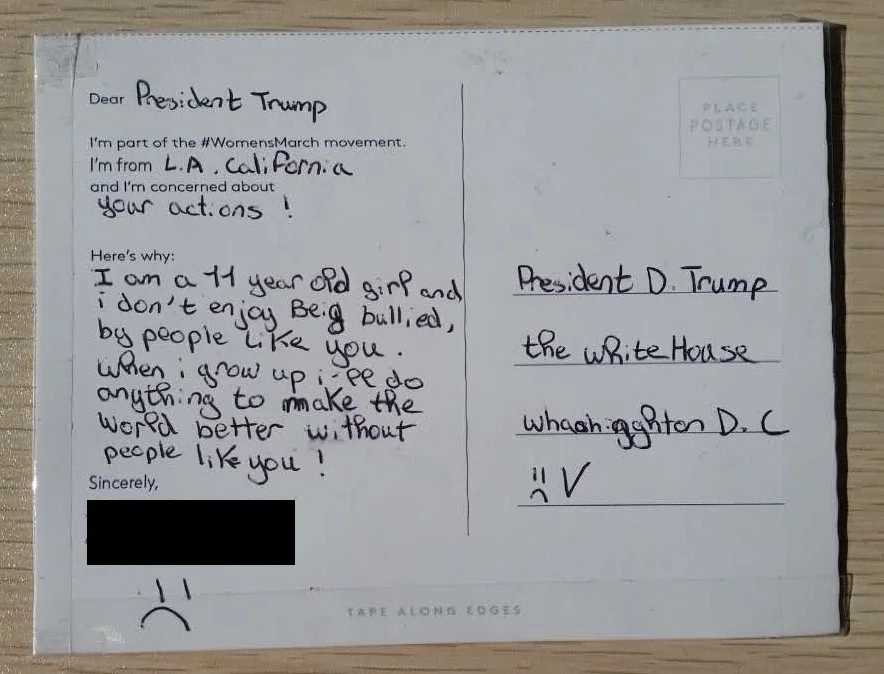 Dear President Trump
I'm part of the #WomensMarch movement.
I'm from L.A. California
and I'm concerned about
your actions !
Here's why:
I am a 11 year old girl and
i don't enjoy Beig bullied,
by people like you.
When i grow up i'll do
anything to make the
world better without
people like you !
Sincerely,
TAPE ALONG EDGES
PLACE
POSTAGE
HERE
President D. Trump
the white House
D. C